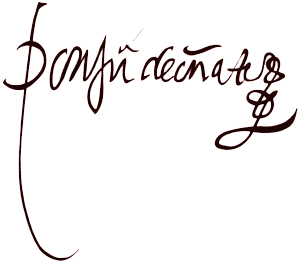 Don Jũ de oñate